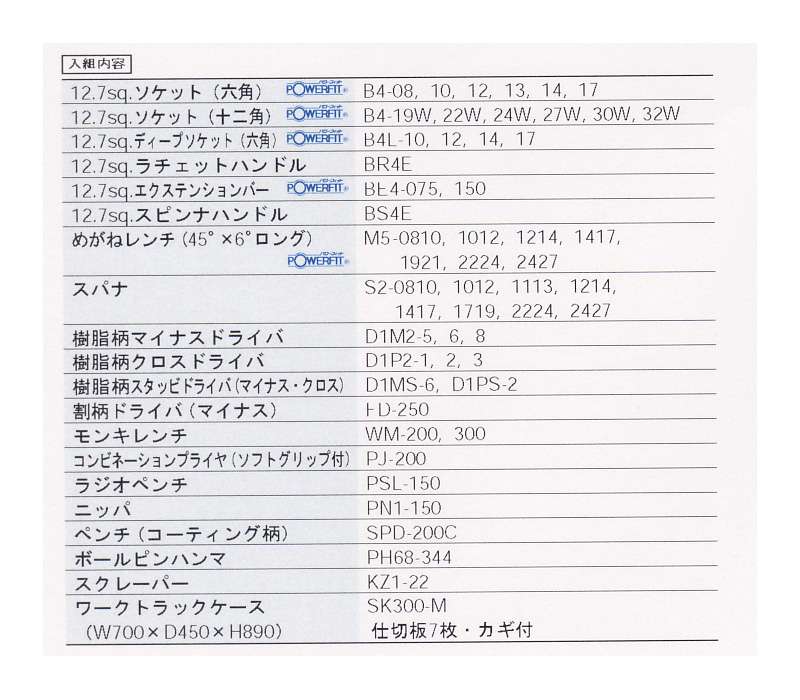 入組内容
12.7sq.ソケット（六角） POWERFIT® B4-08, 10, 12, 13, 14, 17
12.7sq.ソケット（十二角） POWERFIT® B4-19W, 22W, 24W, 27W, 30W, 32W
12.7sq.ディープソケット（六角） POWERFIT® B4L-10, 12, 14, 17
12.7sq.ラチェットハンドル BR4E
12.7sq.エクステンションバー POWERFIT® BE4-075, 150
12.7sq.スピンナハンドル BS4E
めがねレンチ（45°×6°ロング） M5-0810, 1012, 1214, 1417,
POWERFIT® 1921, 2224, 2427
スパナ S2-0810, 1012, 1113, 1214,
1417, 1719, 2224, 2427
樹脂柄マイナスドライバ D1M2-5, 6, 8
樹脂柄クロスドライバ D1P2-1, 2, 3
樹脂柄スタッビドライバ（マイナス・クロス） D1MS-6, D1PS-2
割柄ドライバ（マイナス） FD-250
モンキレンチ WM-200, 300
コンビネーションプライヤ（ソフトグリップ付） PJ-200
ラジオペンチ PSL-150
ニッパ PN1-150
ペンチ（コーティング柄） SPD-200C
ボールピンハンマ PH68-344
スクレーパー KZ1-22
ワークトラックケース SK300-M
（W700×D450×H890） 仕切板7枚・カギ付